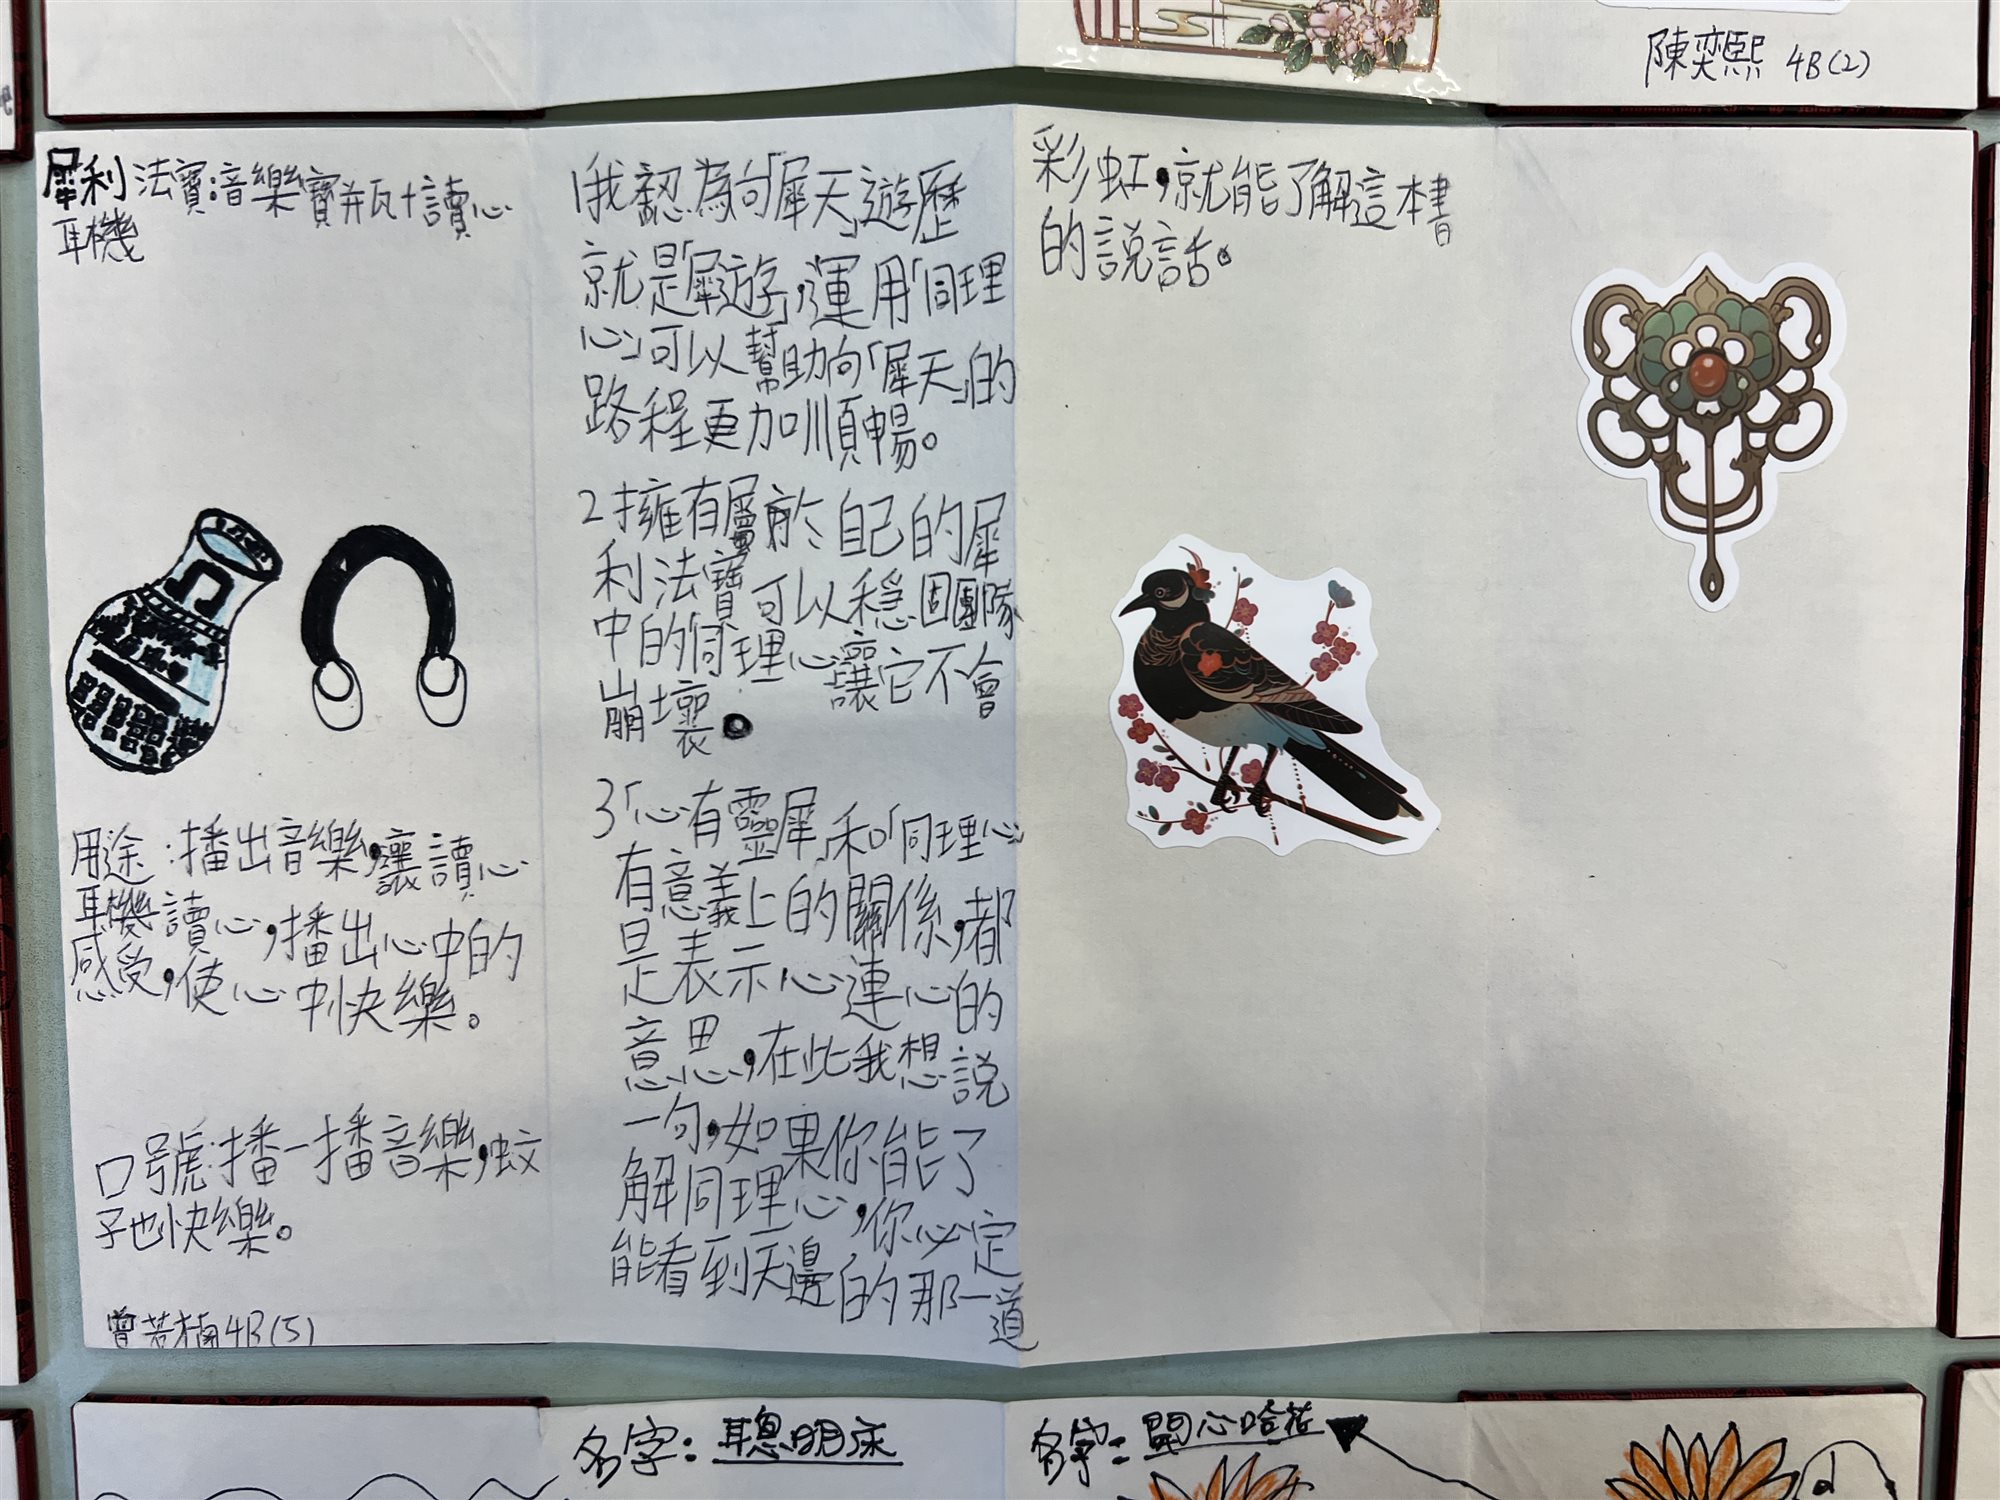 陳奕熙 4B(2)
犀利法寶:音樂寶瓶+讀心
耳機
用途:播出音樂,讓讀心
耳機讀心,播出心中的
感受,使心中快樂。
口號:播一播音樂,蚊
子也快樂。
曾若楠4B(5)
1我認為向「犀天」遊歷
就是「犀遊」,運用「同理
心」可以幫助向「犀天」的
路程更加順暢。
2擁有屬於自己的犀
利法寶可以穩固團隊
中的同理心讓它不會
崩壞。
3「心有靈犀」和「同理心」
有意義上的關係,都
是表示心連心的
意思,在此我想説
一句,如果你能了
解同理心,你必定
能看到天邊的那一道
彩虹,就能了解這本書
的説話。
名字:聰明
名字:開心哈